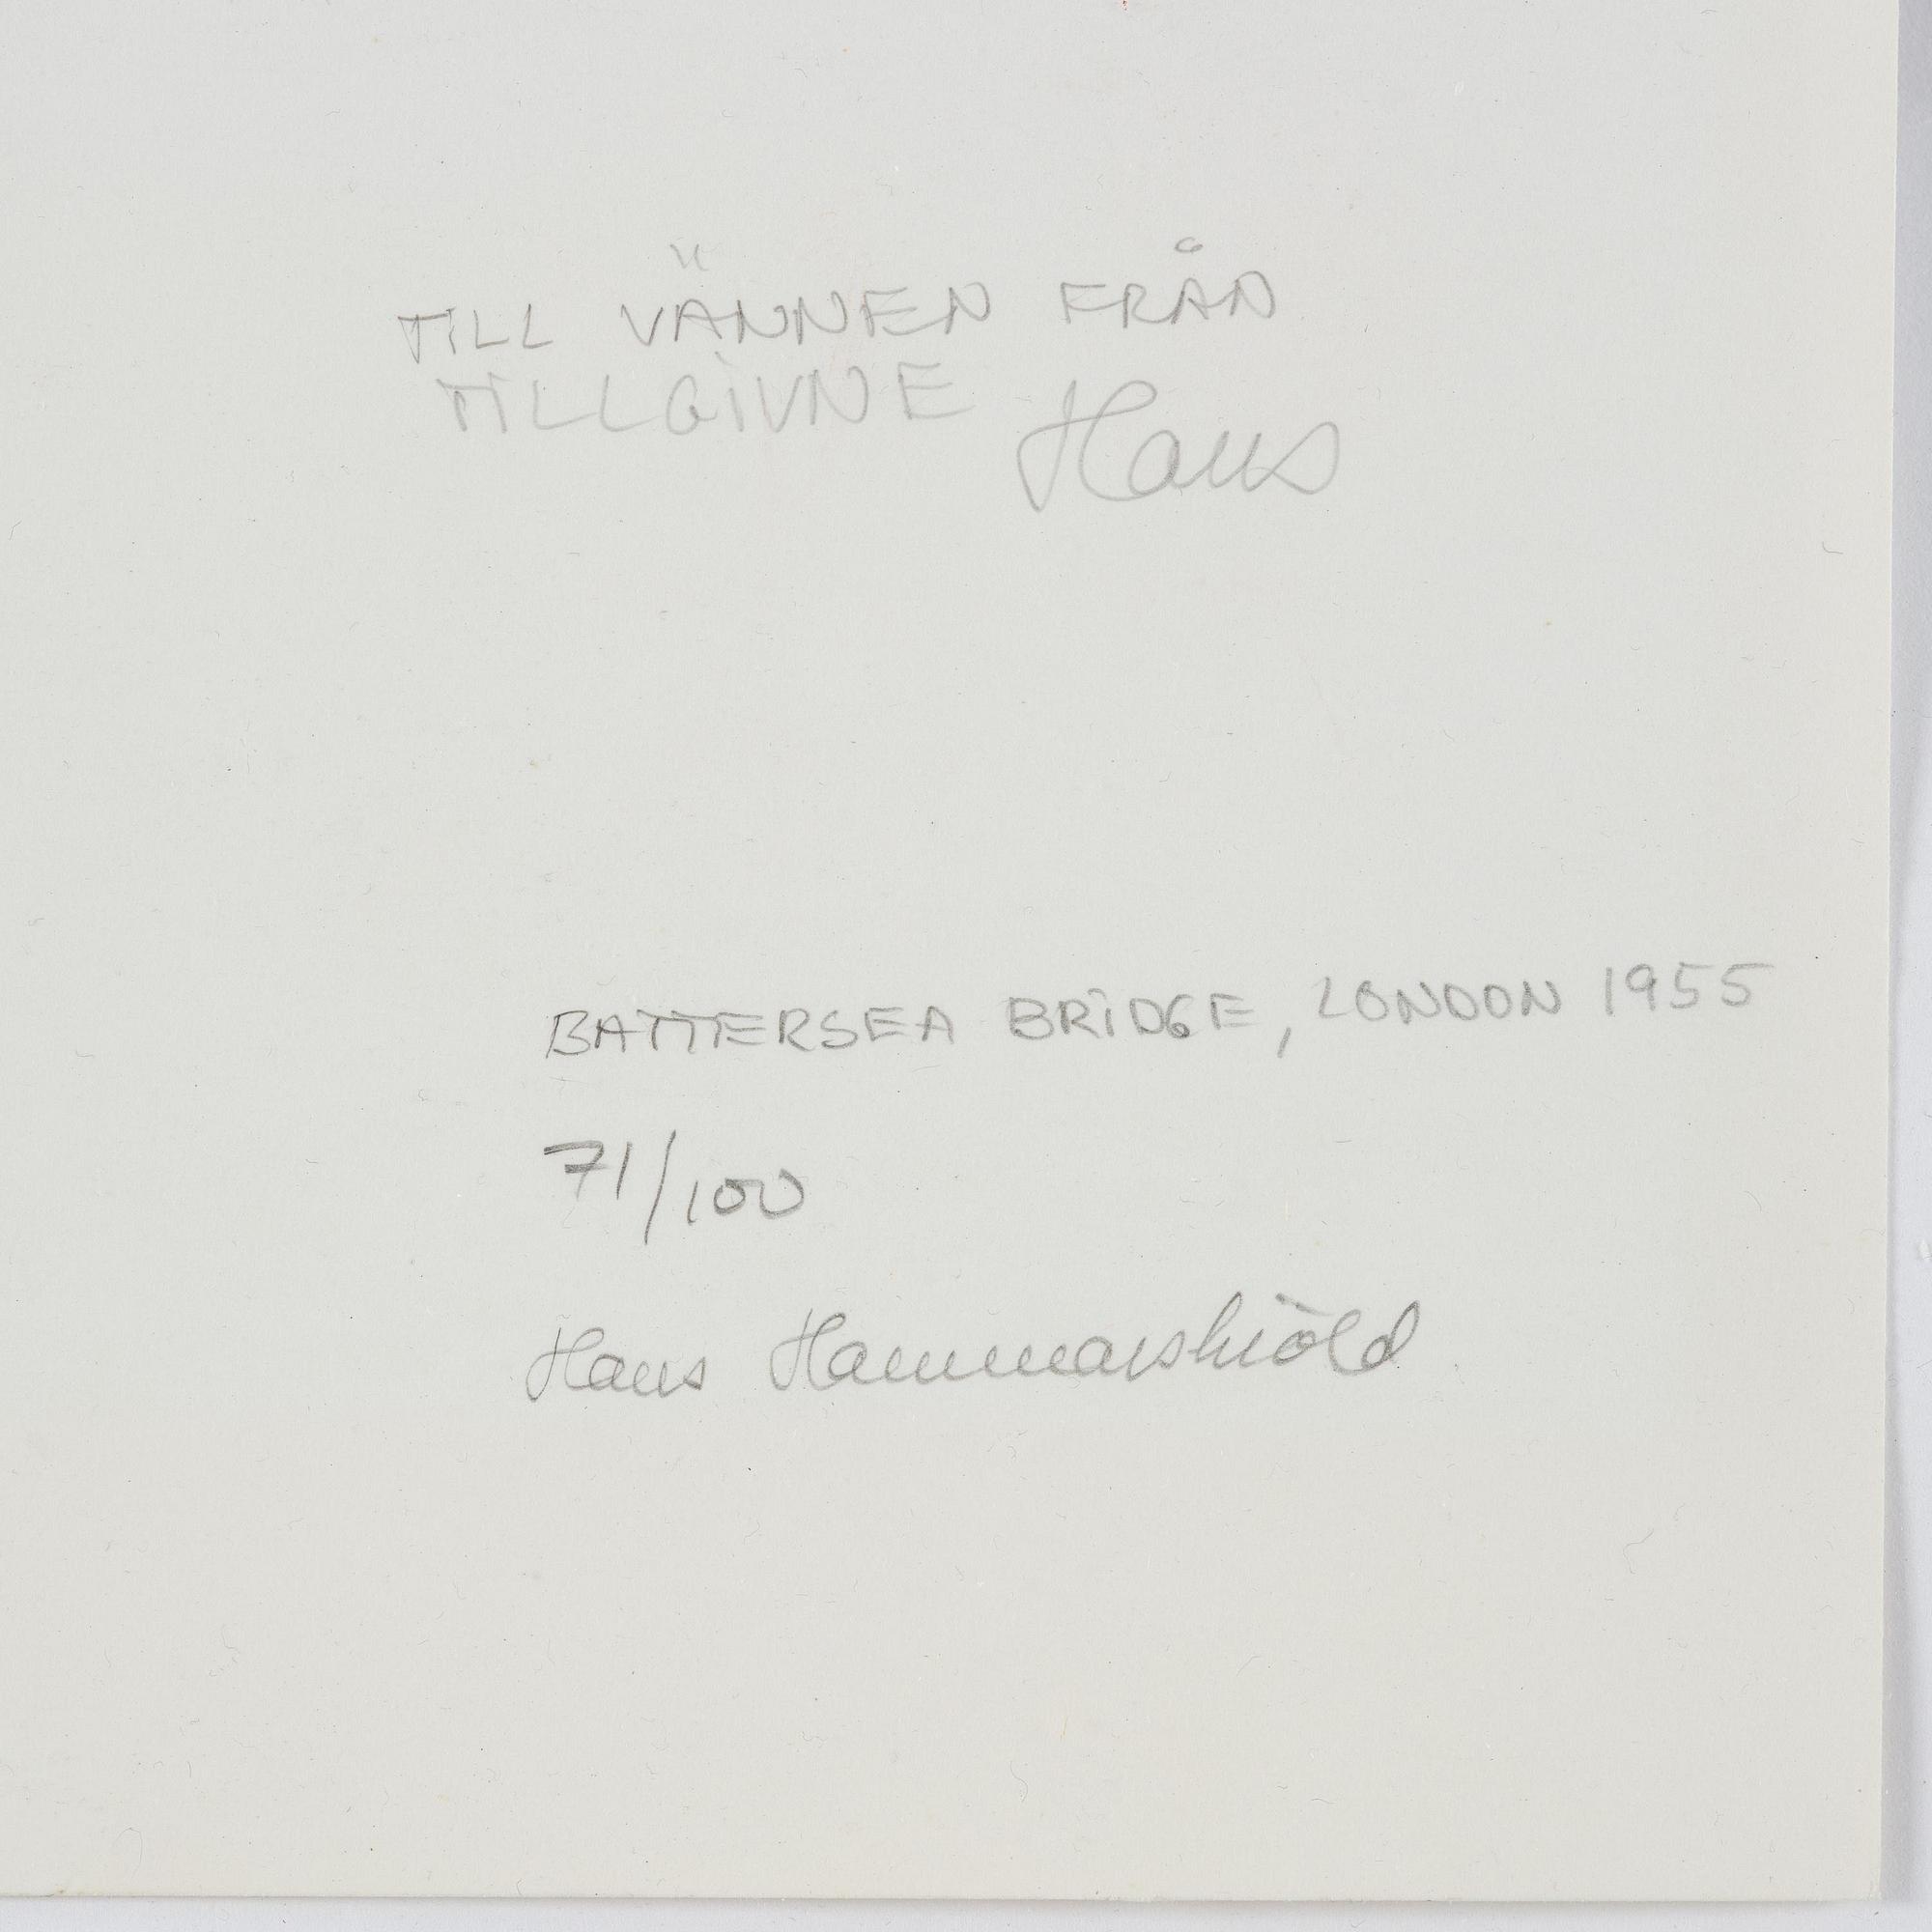 TILL VÄNNEN FRÅN
TILLGIVNE Hans
BATTERSEA BRIDGE, LONDON 1955
71/100
Hans Hammarskiöld